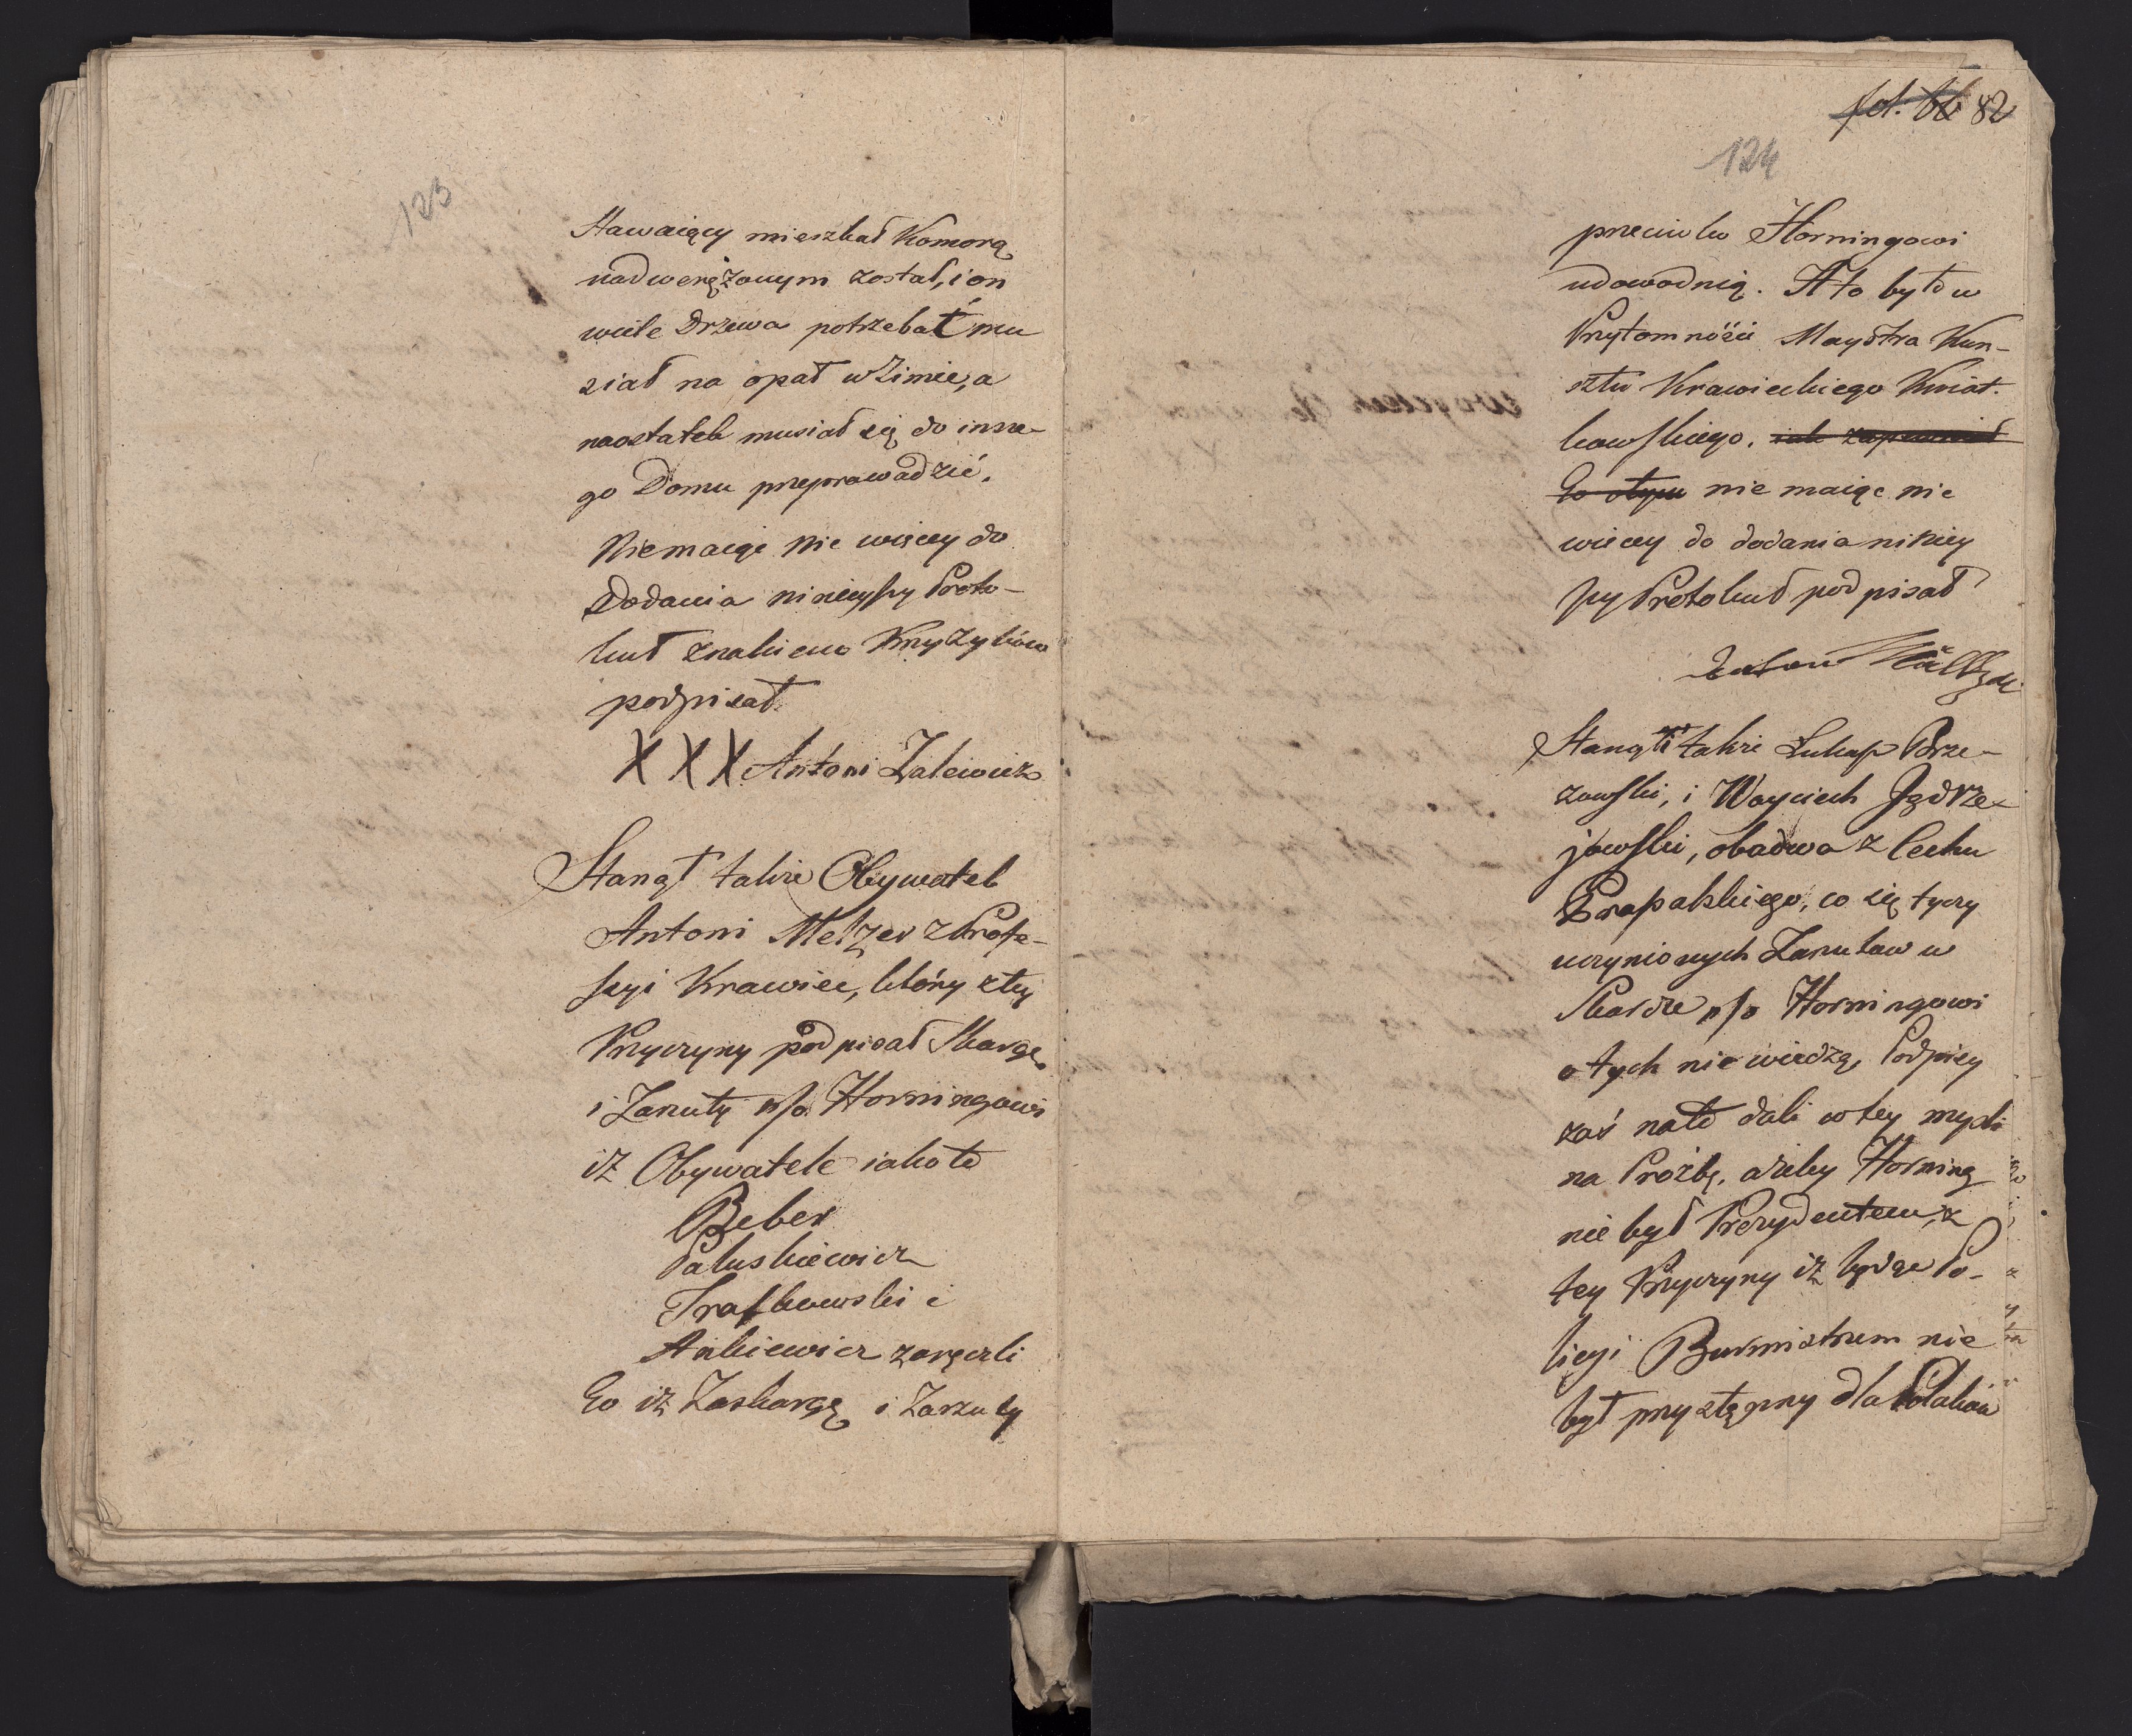 123
Stawaiący mieszkał Komorą
nadwerężonym został, i on
wiele Drzewa potrzebać mu
siał na opał w Zimie, a
naostatek musiał się do insze-
go Domu przeprawadzić.
Niemaiąc nic więcey do
Dodania ninieyszy Proto-
kuł znakiem Krzyżyków
podpisał
XXX Antoni Zalewicz
Stanął także Obywatel
Antoni Metzer z Profe-
syi Krawiec, który z tey
Przyczyny podpisał Skargę
i Zarzuty p/o Horningowi
iż Obywatele iako to
Beber
Paluskiewicz
Traskowski i
Ankiewicz zaręczli
Go iż Zaskargę i Zarzuty
fol. 82
124
przeciwko Horningowi
udowodnią. A to było w
Przytomnóści Maystra Kun-
sztu Krawieckiego Kwiat-
kowskiego. iak zapewniał
Go otym nie maiąc nic
wiecey do dodania niniey
szy Protokuł podpisał
Stanęli także Łukasz Brze-
zowski, i Woyciech Jędrze-
jowski, obadwa z Cechu
co się tyczy
uczynionych Zarutow w
Skardze p/o Horningowi
o tych nie wiedzą, Podpisy
zaś na to dali w tey myśli
na Prozbę, ażeby Horning
nie był Prezydentem, z
tey Przyczyny iż będąc Po-
licyi Burmistrzem nie
był przystępny dla Polaków